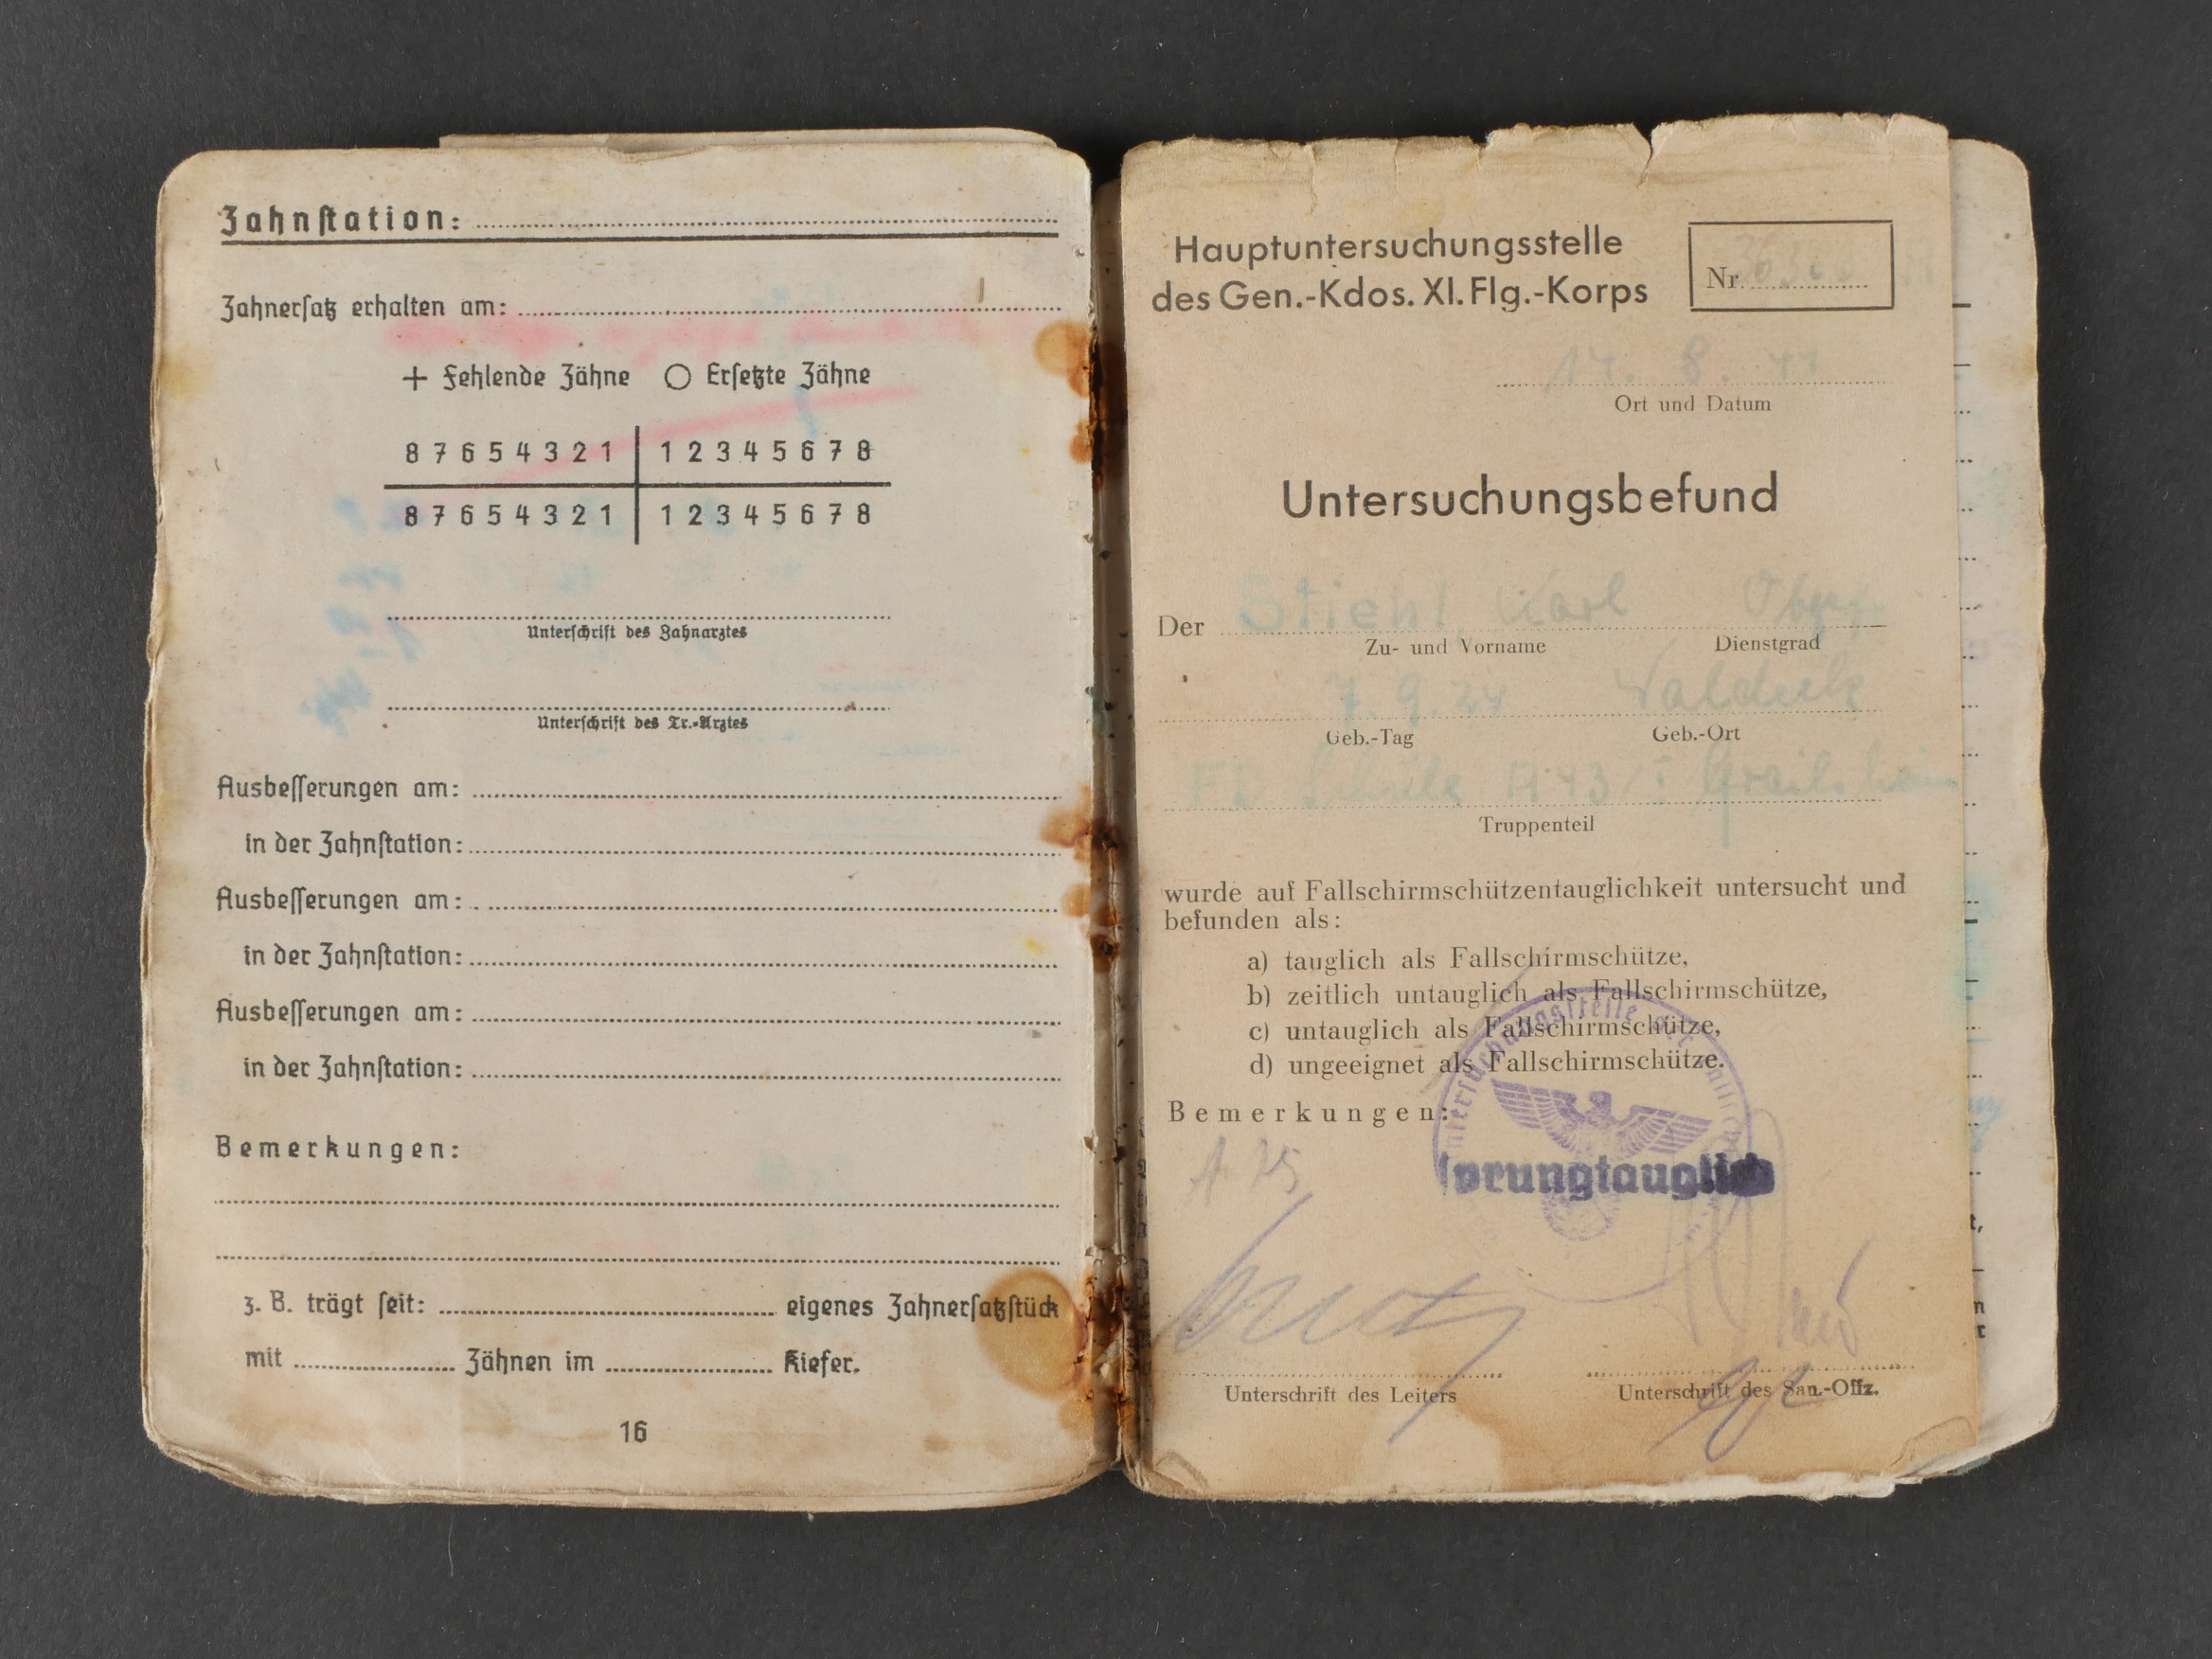 Zahnstation:
Zahnersatz erhalten am:
+ Fehlende Zähne ○ Ersetzte Zähne
8 7 6 5 4 3 2 1 | 1 2 3 4 5 6 7 8
8 7 6 5 4 3 2 1 | 1 2 3 4 5 6 7 8
Unterschrift des Zahnarztes
Unterschrift des Tr.-Arztes
Ausbesserungen am:
in der Zahnstation:
Ausbesserungen am:
in der Zahnstation:
Ausbesserungen am:
in der Zahnstation:
Bemerkungen:
z. B. trägt seit: eigenes Zahnersatzstück
mit Zähnen im Kiefer.
16
Hauptuntersuchungsstelle
des Gen.-Kdos. XI. Flg.-Korps
Nr.
Ort und Datum
Untersuchungsbefund
Der Stiehl Karl
Zu- und Vorname Dienstgrad
7. 9. 24 Waldeck
Geb.-Tag Geb.-Ort
Schule
Truppenteil
wurde auf Fallschirmschützentauglichkeit untersucht und
befunden als:
a) tauglich als Fallschirmschütze,
b) zeitlich untauglich als Fallschirmschütze,
c) untauglich als Fallschirmschütze,
d) ungeeignet als Fallschirmschütze.
Bemerkungen:
sprungtauglich
Unterschrift des Leiters Unterschrift des San.-Offz.